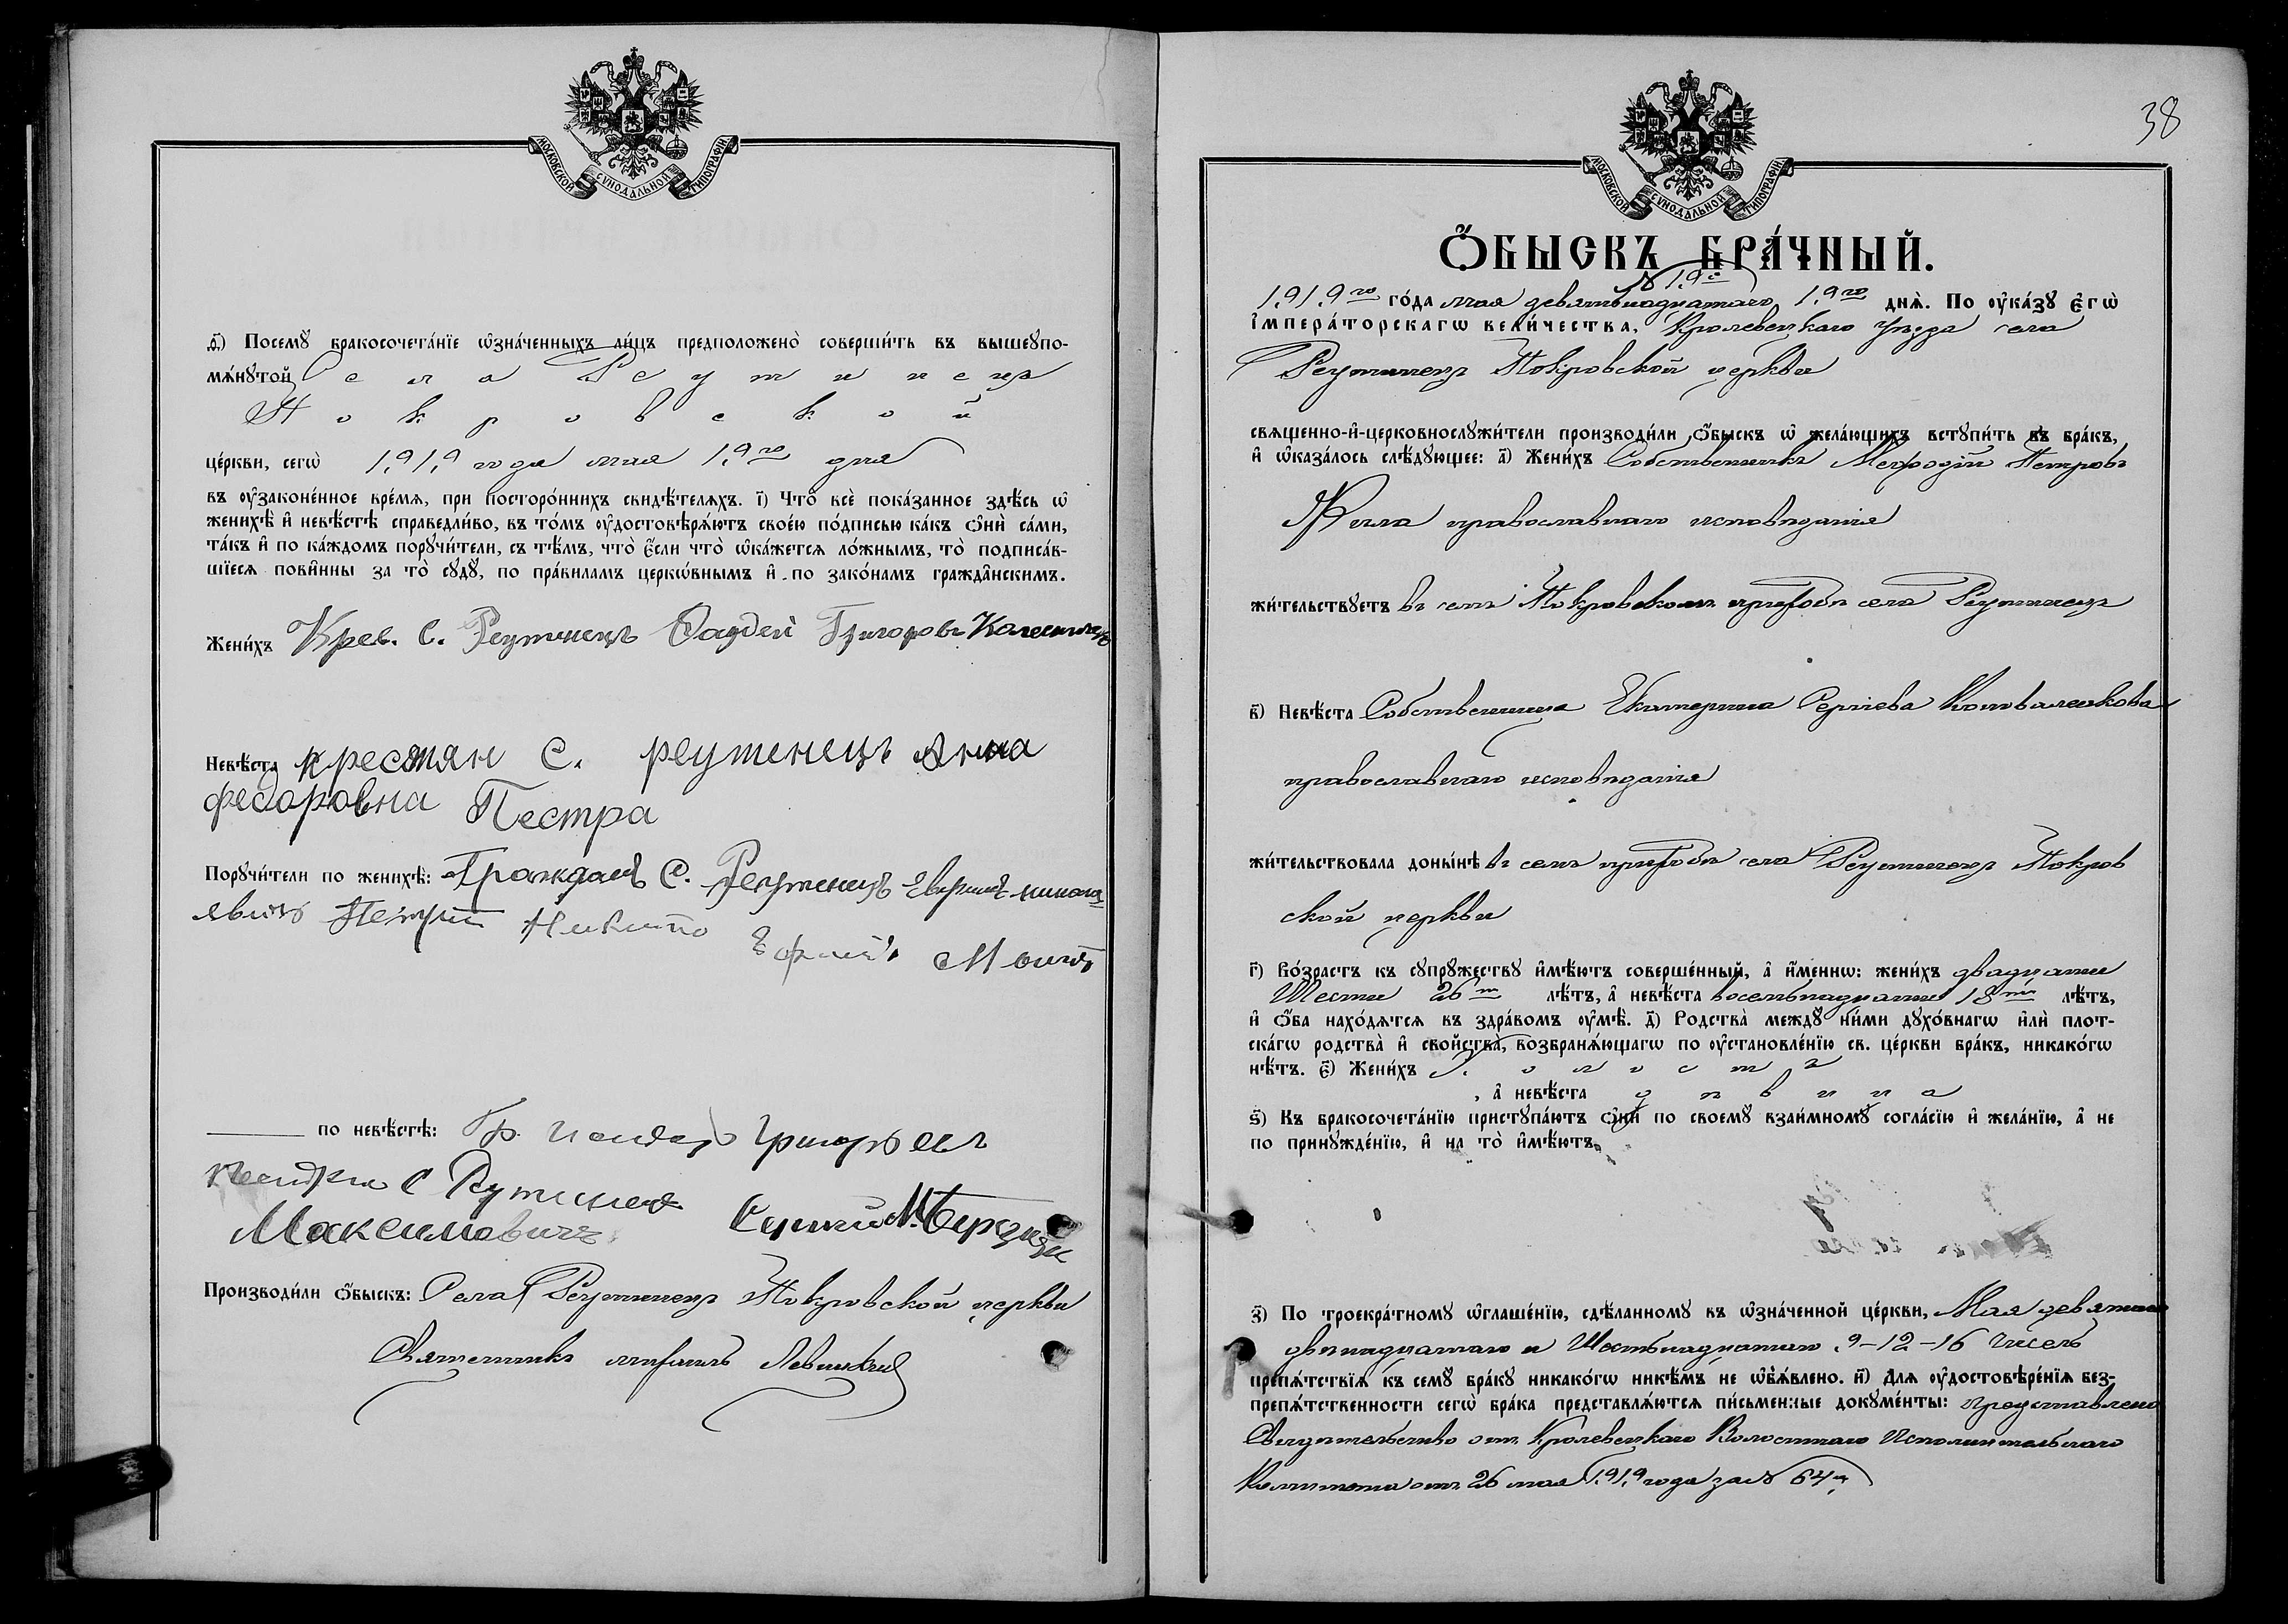 МОСКОВСКОЙ СѴНОДАЛЬНОЙ ТИПОГРАФІИ
ѳ҃) Посемꙋ̀ бракосочета́нїе ѡ҆зна́ченныхъ ли́цъ предположено̀ соверши́ть въ вышеꙋпо-
мѧ́нꙋтой Села Реутинецъ
Покровской
це́ркви, сегѡ̀ 1919 года мая 19го дня
въ ᲂу҆зако́нённое вре́мѧ, при посторо́ннихъ свидѣ́телѧхъ. і҃) Что̀ всѐ пока́занное здѣ́сь ѡ҆
женихѣ̀ и҆ невѣ́стѣ справедли́во, въ то́мъ ᲂу҆достовѣрѧ́ютъ свое́ю по́дписью ка́къ ѻ҆нѝ са́ми,
та́къ и҆ по ка́ждомъ порꙋчи́тели, съ тѣ́мъ, что̀ є҆́сли что̀ ѡ҆ка́жетсѧ ло́жнымъ, то̀ подписа́в-
шїесѧ пови́нны за то̀ сꙋдꙋ̀, по пра́виламъ церкѡ́внымъ и҆ по зако́намъ гражда́нскимъ.
Жени́хъ Крес. С. Реутинецъ Фаддей Григоровъ
Невѣ́ста крестян С. реутенецъ Анна
федоровна Пестра
Порꙋчи́тели по женихѣ̀: Граждан С. Реутенецъ
Никито
по невѣ́стѣ: Гр.
С Рутинец
Максимовичъ Сергій М.
Производи́ли ѻ҆́быскъ: Села Реутинецъ Покровской церкви
Священникъ Михаилъ Левицкій
38
МОСКОВСКОЙ СѴНОДАЛЬНОЙ ТИПОГРАФІИ
Ѻ҆́БЫСКЪ БРА́ЧНЫЙ.
№ 19
1919го го́да мая девятнадцатаго 19го днѧ̀. По ᲂу҆ка́зꙋ Є҆гѡ̀
І҆мпера́торскагѡ вели́чества, Кролевецкаго уѣзда села
Реутинецъ Покровской церкви
свѧщенно-и҆-церковнослꙋжи́тели производи́ли ѻ҆́быскъ ѡ҆ жела́ющихъ встꙋпи́ть въ бра́къ,
и҆ ѡ҆каза́лось слѣ́дꙋющее: а҃) Жени́хъ Собственникъ Мефодій Петровъ
православнаго исповѣданія
жи́тельствꙋетъ въ семъ Покровскомъ приходѣ села Реутинецъ
в҃) Невѣ́ста Собственница Екатерина Сергіева Коновалошкова
православнаго исповѣданія
жи́тельствовала доны́нѣ въ семъ приходѣ села Реутинецъ Покров
ской церкви
г҃) Во́зрастъ къ сꙋпрꙋ́жествꙋ и҆мѣ́ютъ соверше́нный, а҆ и҆́меннѡ: жени́хъ двадцати
Шести 26ти лѣ́тъ, а҆ невѣ́ста восемьнадцати 18ти лѣ́тъ,
и҆ ѻ҆́ба нахо́дѧтсѧ въ здра́вомъ ᲂу҆мѣ̀. д҃) Родства̀ междꙋ̀ ни́ми дꙋхо́внагѡ и҆лѝ плот-
ска́гѡ родства̀ и҆ сво́йства̀, возбранѧ́ющагѡ по ᲂу҆становле́нїю св. це́ркви бра́къ, никако́гѡ
нѣ́тъ. є҃) Жени́хъ холостъ
, а҆ невѣ́ста дѣвица
ѕ҃) Къ бракосочета́нїю пристꙋпа́ютъ ѻ҆нѝ по своемꙋ̀ взаи́мномꙋ согла́сїю и҆ жела́нїю, а҆ не
по принꙋжде́нїю, и҆ на то̀ и҆мѣ́ютъ
з҃) По троекра́тномꙋ ѡ҆глаше́нїю, сдѣ́ланномꙋ въ ѡ҆зна́ченной це́ркви, Мая девятаго
двѣнадцатаго и Шестьнадцатаго 9-12-16 Числъ
препѧ́тствїѧ къ семꙋ̀ бра́кꙋ никако́гѡ никѣ́мъ не ѡ҆б̾ѧ́влено. и҃) Длѧ ᲂу҆достовѣре́нїѧ без-
препѧ́тственности сегѡ̀ бра́ка представлѧ́ютсѧ пи́сьменные докꙋме́нты: представлено
Свидѣтельство отъ Кролевецкаго Волостнаго Исполнительнаго
Комитета отъ 26 мая 1919 года за № 64